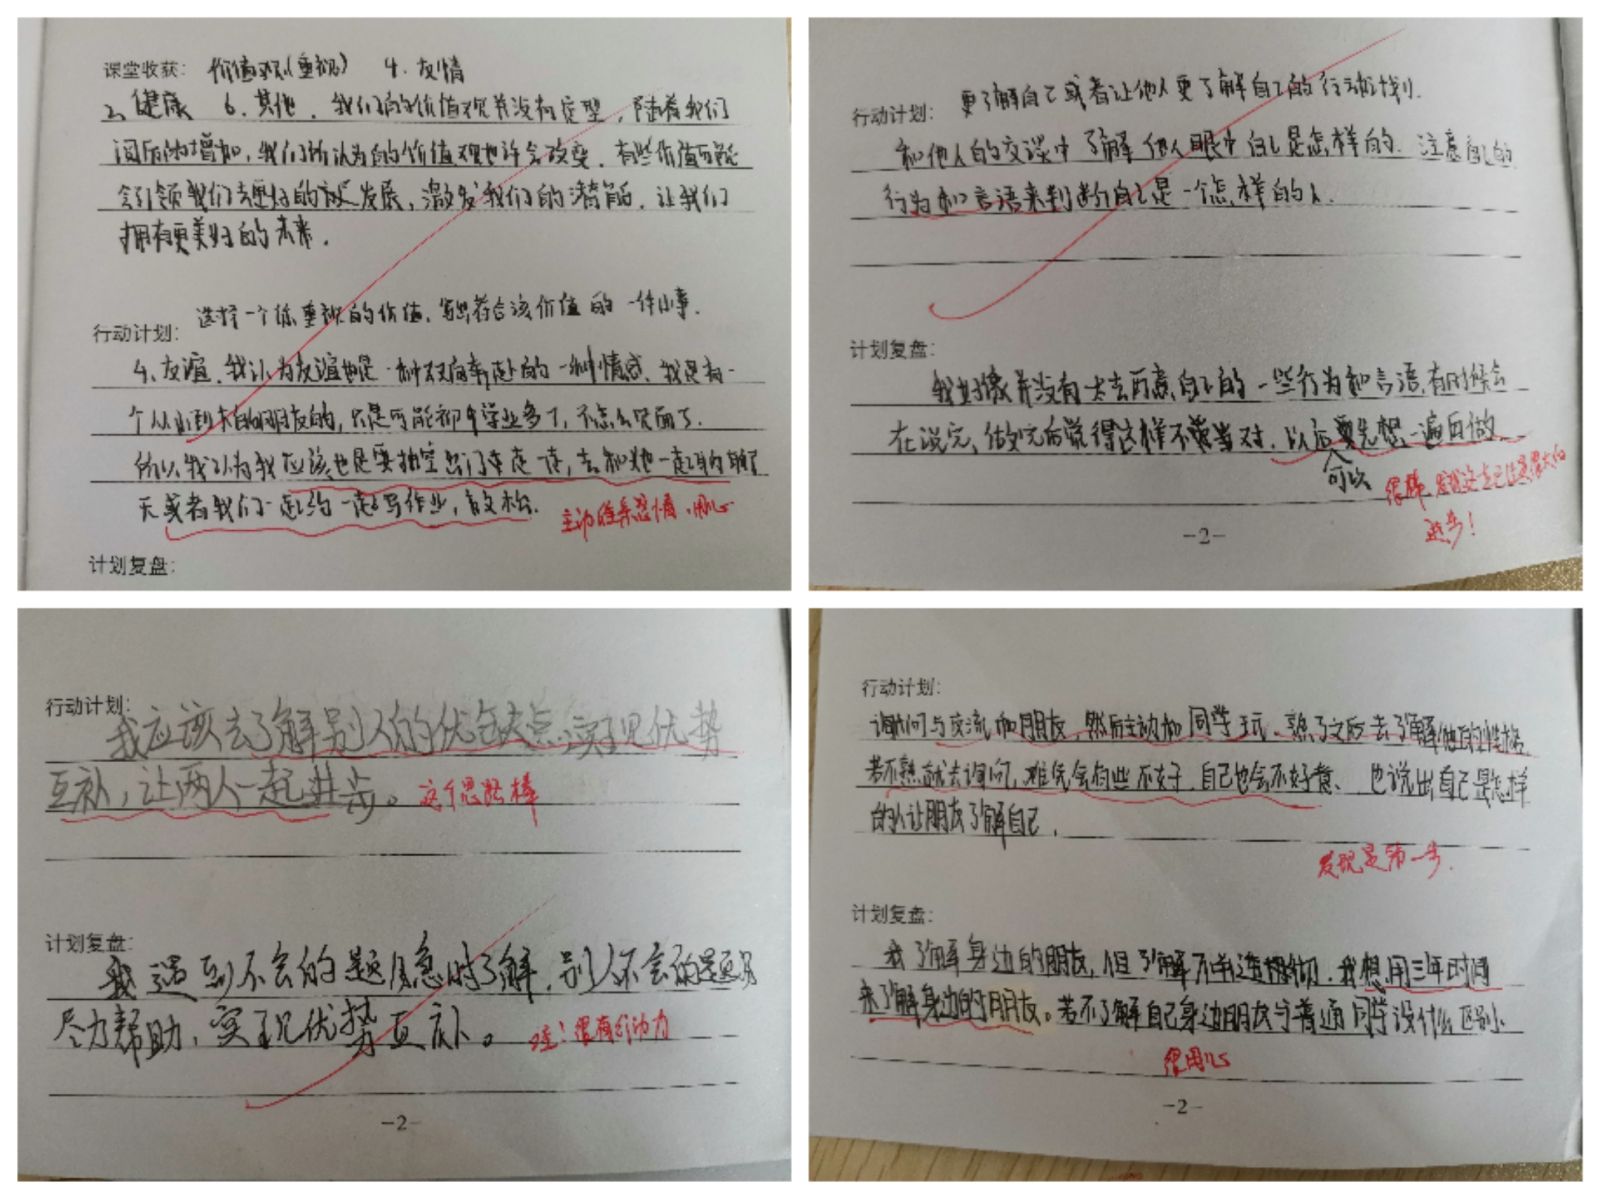 课堂收获: 价值观(重视) 4.友情
2.健康 6.其他.我们的价值观并没有定型,随着我们
阅历的增加,我们所认为的价值观也许会改变.有些价值可能
会引领我们去更好的发展,激发我们的潜能,让我们
拥有更美好的未来.
行动计划: 选择一个你重视的价值,写出符合该价值的一件小事.
4.友谊.我认为友谊也是一种双向奔赴的一种情感.我是有一
个从小到大的朋友的,只是可能初中学业多了,不怎么见面了.
所以,我认为我应该也是要抽空出门走一走,去和她一起聊聊
天或者我们一起约一起写作业,
主动维系感情,用心
计划复盘:
行动计划: 更了解自己或者让他人更了解自己的行动计划.
和他人的交谈中了解他人眼中自己是怎样的.注意自己的
行为和言语来判断自己是一个怎样的人.
计划复盘:
我好像并没有太去在意自己的一些行为和言语,有时候会
在说完,做完后觉得这样不对.以后要先想一遍再做
可以
很棒,发现这点已经是很大的
进步!
-2-
行动计划:
我应该去了解别人的优缺点,实现优势
互补,让两人一起进步。 这个思路棒
计划复盘:
我遇到不会的题及时了解,别人不会的题
尽力帮助,实现优势互补。 哇!很有行动力
-2-
行动计划:
询问与交流和朋友,然后主动和同学玩,熟了之后去了解他的性格
若不熟就去询问,难免会有些不好,自己也会不好意、也说出自己是怎样
的人让朋友了解自己.
发现是第一步.
计划复盘:
我了解身边的朋友,但了解不.我想用三年时间
来了解身边的朋友。若不了解自己身边朋友与普通同学没什么区别.
很用心
-2-